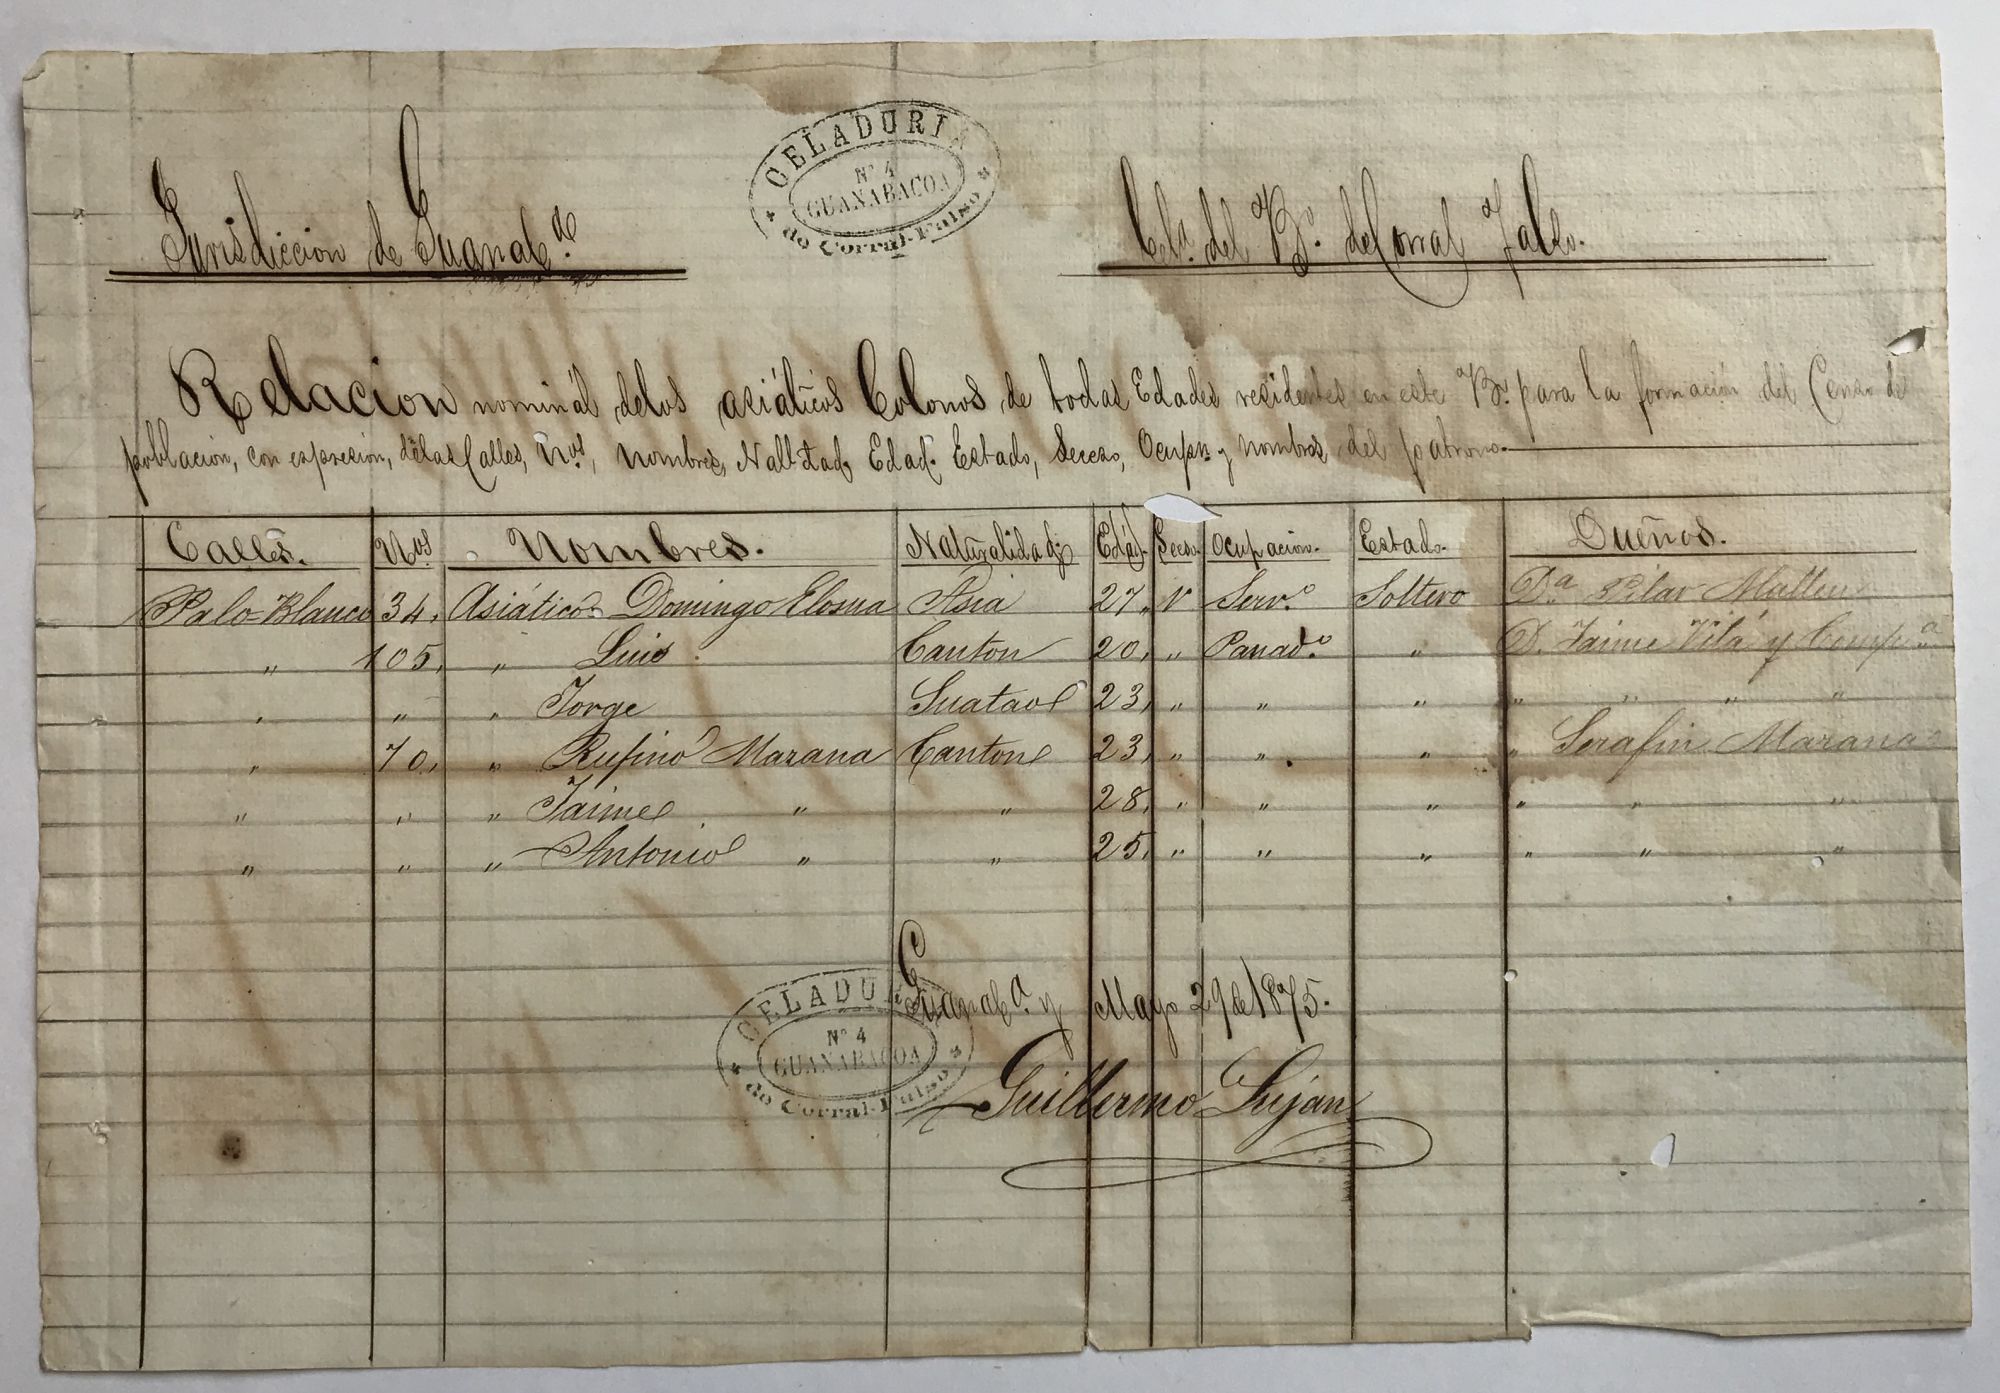 CELADURIA
Nº 4
GUANABACOA
de Corral-Falso
Jurisdiccion de Guanabª.
Celª. del Bº. del Corral Falso.
Relacion nominál delos asiáticos Colonos de todas Edades residentes en este Bº. para la formación del Censo de
poblacion, con espresion, delas Calles, Nos, nombres, Naltdad, Edad. Estado, Secso, Ocupn y nombres del patrono.
Calles. Nos Nombres. Naturalidad. Edad. Secso. Ocupacion. Estado. Dueños.
Palo-Blanco 34, Asiático Domingo Elosua Asia 27, V Servº. Soltero Dª Pilar
" 105, " Luis. Canton 20, " Panadº. " D. Jaime Vilá y Compª
" " " Jorge 23, " " " " " " "
" 70, " Rufino Mazana Canton 23, " " " " Serafin Mazana
" " " Jaime " " 28, " " " " " "
" " " Antonio " " 25, " " " " " "
Guanabª. y Mayo 29 de 1875.
CELADURIA
Nº 4
GUANABACOA
de Corral-Falso
Guillermo Luján